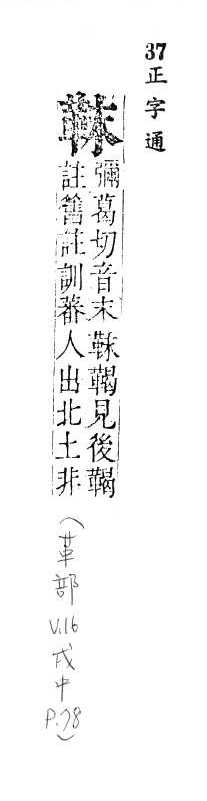 37正字通
靺
彌葛切音末靺鞨見後鞨
註舊註訓蕃人出北土非
(革部
V.16
戌中
P.78)